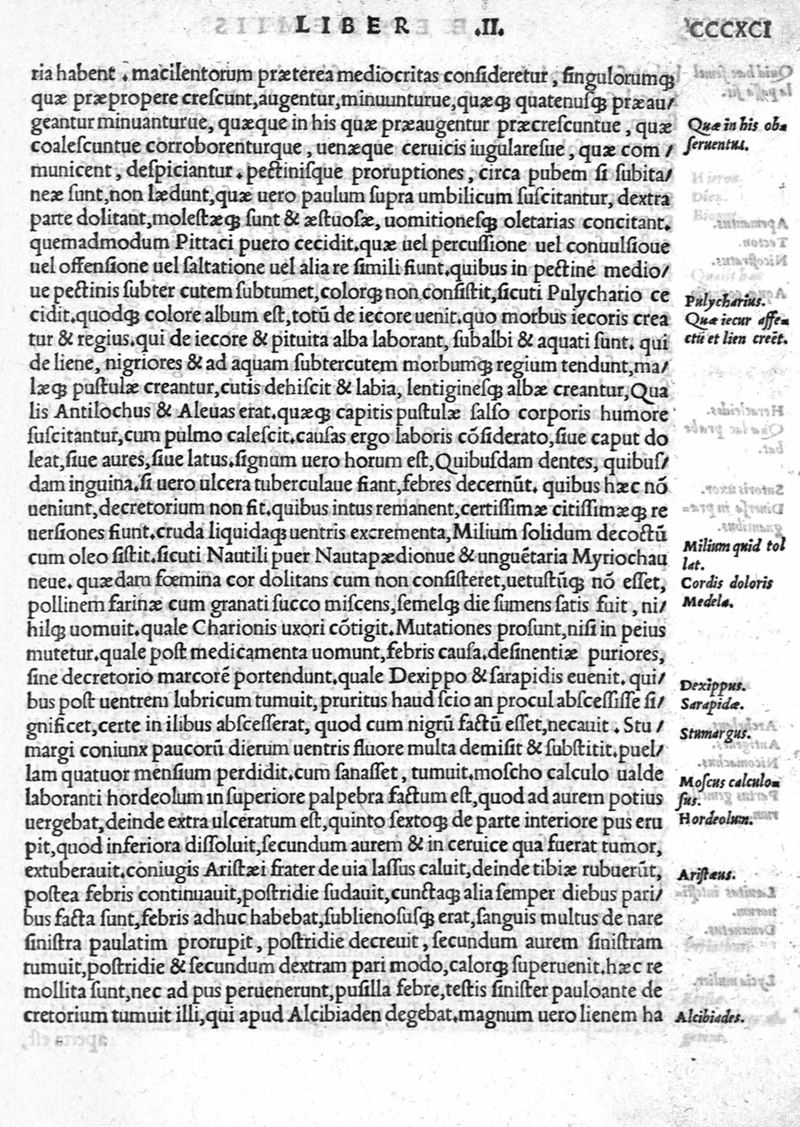 LIBER .II. CCCXCI
ria habent . macilentorum præterea mediocritas consideretur, singulorumqꝫ
quæ præpropere crescunt,augentur,minuunturue,quæqꝫ quatenusqꝫ præau/
geantur minuanturue, quæque in his quæ præaugentur præcrescuntue, quæ
coalescuntue corroborenturque, uenæque ceruicis iugularesue, quæ com/
municent, despiciantur. pectinisque proruptiones, circa pubem si subita/
neæ sunt,non lædunt,quæ uero paulum supra umbilicum suscitantur, dextra
parte dolitant,molestæqꝫ sunt & æstuosæ, uomitionesqꝫ oletarias concitant.
quemadmodum Pittaci puero cecidit.quæ uel percussione uel conuulsioue
uel offensione uel saltatione uel alia re simili fiunt,quibus in pectine medio/
ue pectinis subter cutem subtumet,colorqꝫ non consistit,sicuti Pulychario ce
cidit.quodqꝫ colore album est,totū de iecore uenit.quo morbus iecoris crea
tur & regius.qui de iecore & pituita alba laborant, subalbi & aquati sunt. qui
de liene, nigriores & ad aquam subtercutem morbumqꝫ regium tendunt,ma/
læqꝫ pustulæ creantur,cutis dehiscit & labia, lentiginesqꝫ albæ creantur,Qua
lis Antilochus & Aleuas erat.quæqꝫ capitis pustulæ salso corporis humore
suscitantur,cum pulmo calescit.causas ergo laboris cōsiderato,siue caput do
leat,siue aures,siue latus.signum uero horum est,Quibusdam dentes, quibus/
dam inguina.si uero ulcera tuberculaue fiant,febres decernūt. quibus hæc nō
ueniunt,decretorium non fit.quibus intus remanent,certissimæ citissimæqꝫ re
uersiones fiunt.cruda liquidaqꝫ uentris excrementa,Milium solidum decoctū
cum oleo sistit.sicuti Nautili puer Nautapædionue & unguētaria Myriochau
neue. quædam fœmina cor dolitans cum non consisteret,uetustūqꝫ nō esset,
pollinem farinæ cum granati succo miscens,semelqꝫ die sumens satis fuit, ni/
hilqꝫ uomuit.quale Charionis uxori cōtigit.Mutationes prosunt,nisi in peius
mutetur.quale post medicamenta uomunt,febris causa.desinentiæ puriores,
sine decretorio marcorē portendunt.quale Dexippo & sarapidis euenit. qui/
bus post uentrem lubricum tumuit,pruritus haud scio an procul abscessisse si/
gnificet,certe in ilibus abscesserat, quod cum nigrū factū esset,necauit. Stu/
margi coniunx paucorū dierum uentris fluore multa demisit & substitit,puel/
lam quatuor mensium perdidit.cum sanasset, tumuit.moscho calculo ualde
laboranti hordeolum in superiore palpebra factum est,quod ad aurem potius
uergebat,deinde extra ulceratum est,quinto sextoqꝫ de parte interiore pus eru
pit,quod inferiora dissoluit,secundum aurem & in ceruice qua fuerat tumor,
extuberauit.coniugis Aristæi frater de uia lassus caluit,deinde tibiæ rubuerūt,
postea febris continuauit,postridie sudauit,cunctaqꝫ alia semper diebus pari/
bus facta sunt,febris adhuc habebat,sublienosusqꝫ erat,sanguis multus de nare
sinistra paulatim prorupit, postridie decreuit, secundum aurem sinistram
tumuit,postridie & secundum dextram pari modo,calorqꝫ superuenit.hæc re
mollita sunt,nec ad pus peruenerunt,pusilla febre,testis sinister pauloante de
cretorium tumuit illi,qui apud Alcibiaden degebat.magnum uero lienem ha
Quæ in his ob=
seruentus.
Pulycharius.
Quæ iecur affe=
ctū et lien creēt.
Milium quid tol
lat.
Cordis doloris
Medela.
Dexippus.
Sarapidæ.
Stumargus.
Moscus calculo=
sus.
Hordeolum.
Aristæus.
Alcibiades.